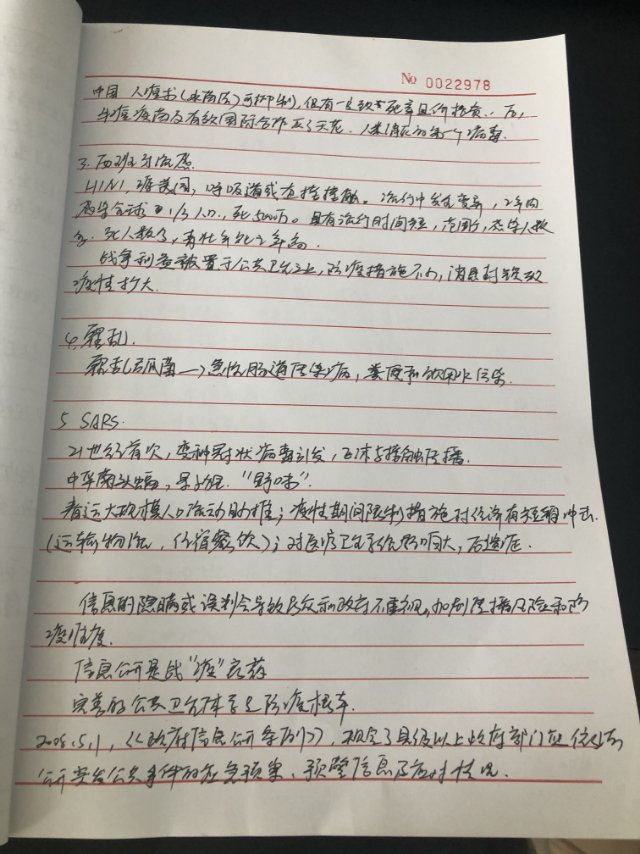 No 0022978
中国 人痘术(水苗法)可抑制,但有一定致死率且价格贵.. 后,
牛痘疫苗及有效国际合作灭了天花. 人类消灭的第一个病毒
3. 西班牙流感.
H1N1, 源美国, 呼吸道或直接接触。流行中发生变异, 2年内
感染全球 1/3人口, 死5000万。具有流行时间短, 范围广, 感染人数
多, 死人数多, 青壮年死亡率高.
战争利益被置于公共卫生之上, 防疫措施不力, 消息封锁致
疫情扩大.
4. 霍乱.
霍乱弧菌—>急性肠道传染病, 粪便和饮用水污染.
5 SARS.
21世纪首次, 变种冠状病毒引发, 飞沫与接触传播.
中华菊头蝠, 果子狸. "野味"
春运大规模人口流动助推; 疫情期间限制措施对经济有短期冲击
(运输物流, 住宿餐饮); 对医疗卫生系统影响大, 后遗症.
信息的隐瞒或误判会导致民众和政府不重视, 加剧传播风险和防
疫难度.
信息公开是战"疫"良药
完善的公共卫生体系是防疫根本.
5.1, 《政府信息公开条例》, 规定了县级以上政府部门应依法
公开突发公共事件的应急预案、预警信息及应对情况.